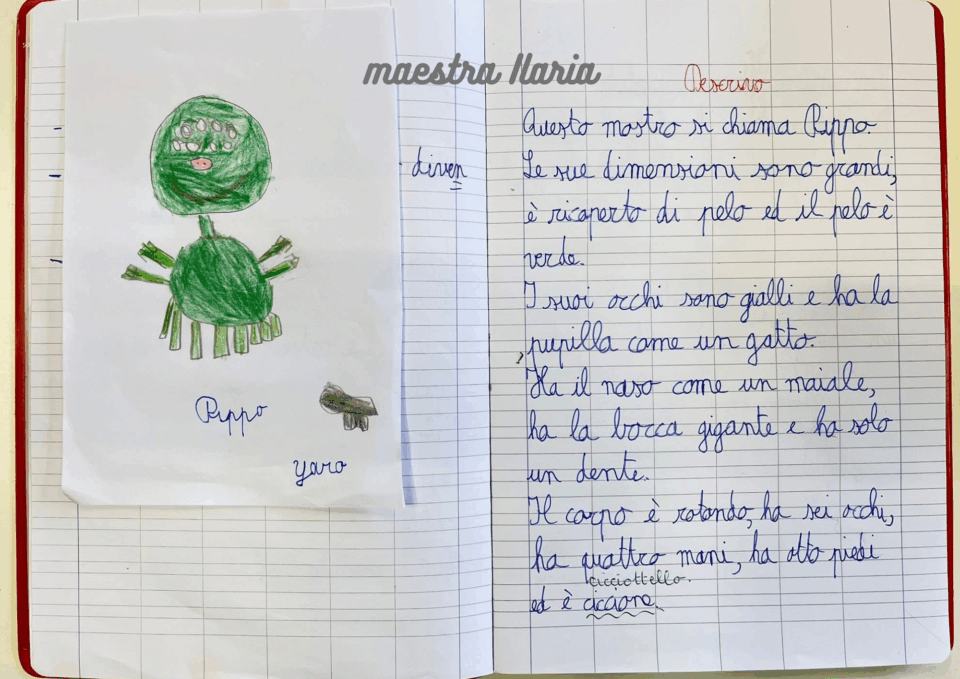 maestra Ilaria
diven
Pippo
yaro
Descrivo
Questo mostro si chiama Pippo.
Le sue dimensioni sono grandi,
è ricoperto di pelo ed il pelo è
verde.
I suoi occhi sono gialli e ha la
pupilla come un gatto.
Ha il naso come un maiale,
ha la bocca gigante e ha solo
un dente.
Il corpo è rotondo, ha sei occhi,
ha quattro mani, ha otto piedi
cicciottello.
ed è ciccione.